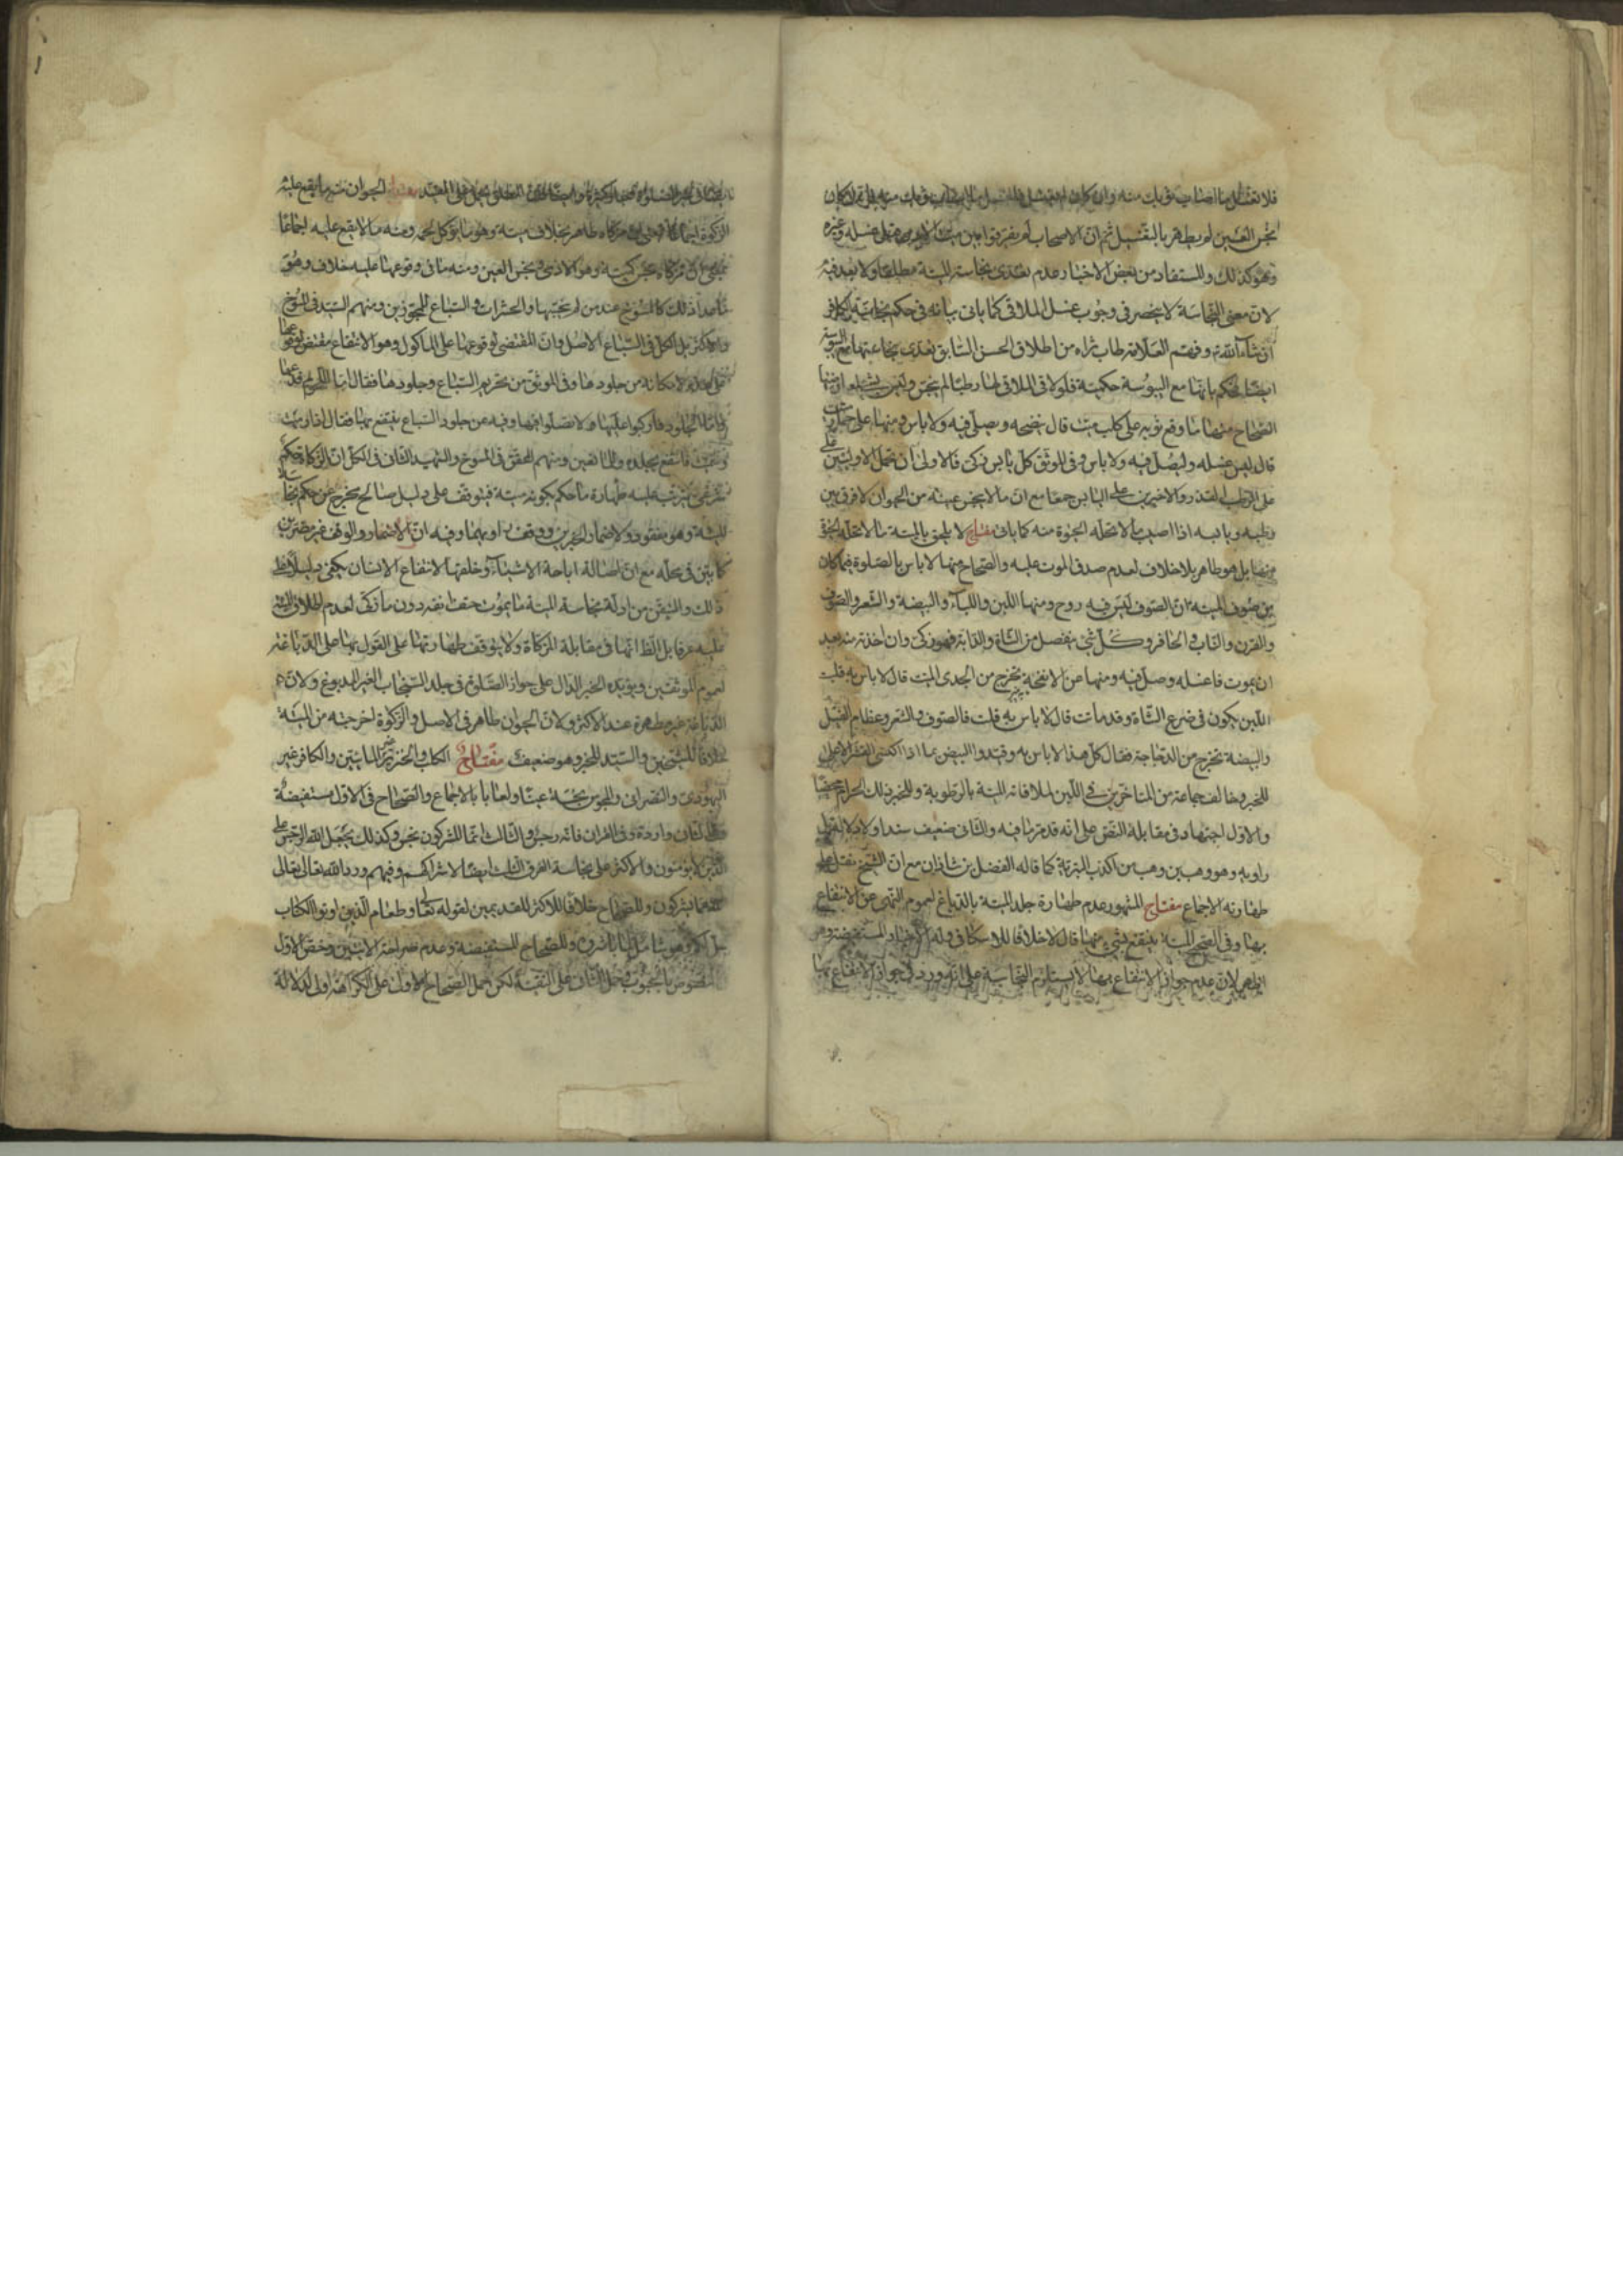 فلا تغسل ما اصاب ثوبك منه وان كان لم يغسل فاغسل ما اصاب ثوبك منه
نجس العين لم يطهر بالتغسيل ثم ان الاصحاب لم يفرقوا بين ميت الادمى قبل غسله وغيره
وهو كذلك والمستفاد من بعض الاخبار عدم تعدى نجاسة الميتة مطلقا ولا بعد فيه
لان معنى النجاسة لا ينحصر فى وجوب غسل الملاقى كما ياتى بيانه فى حكم نجاسة الكافر
ان شاء الله وفهم العلامة طاب ثراه من اطلاق الحسن السابق تعدى نجاستها مع اليبوسة
ايضا لكنه حكم بانها مع اليبوسة حكمية فلو لاقى الملاقى لها رطبا لم ينجس وليس بشىء
الصحاح منها ما وقع ثوبه على كلب ميت قال ينضحه ويصلى فيه ولا باس ومنها على حمار ميت
قال ليس عليه غسله وليصل فيه ولا باس وفى الموثق كل يابس ذكى فالاولى ان تحمل الاوليين
على الرطب والاخيرين على اليابس جمعا مع ان ما لا ينجس عينه من الحيوان لا فرق بين
رطبه ويابسه اذا اصيب ما لا تحله الحيوة منه كما ياتى مفتاح لا يلحق بالميتة ما لا تحله الحيوة
منها بل هو طاهر بلا خلاف لعدم صدق الموت عليه والصحاح منها لا باس بالصلوة فيما كان
من صوف الميتة ان الصوف ليس فيه روح ومنها اللبن واللباء والبيضة والشعر والصوف
والقرن والناب والحافر وكل شئ ينفصل من الشاة والدابة فهو ذكى وان اخذته منه بعد
ان يموت فاغسله وصل فيه ومنها عن الانفحة تخرج من الجدى الميت قال لا باس به قلت
اللبن يكون فى ضرع الشاة وقد ماتت قال لا باس به قلت فالصوف والشعر وعظام الفيل
والبيضة تخرج من الدجاجة فقال كل هذا لا باس به وقيدوا البيض بما اذا اكتسى القشر الاعلى
للخبر وخالف جماعة من المتاخرين فى اللبن لملاقاته الميتة بالرطوبة وللخبر ذلك الحرام محضا
والاول اجتهاد فى مقابلة النص على انه قد مر ما فيه والثانى ضعيف سندا
راويه وهو وهب بن وهب من اكذب البرية كما قاله الفضل بن شاذان مع ان الشيخ نقل على
طهارته الاجماع مفتاح المشهور عدم طهارة جلد الميتة بالدباغ لعموم النهى عن الانتفاع
بها وفى الصحيح الميتة ينتفع بشئ منها قال لا خلافا للاسكافى وله الاخبار المستفيضة وهو
اظهر لان عدم جواز الانتفاع بها لا يستلزم النجاسة على انه ورد فى جواز الانتفاع بها
ايضا فى غير الصلوة اخبار كثيرة المطلق يحمل على المقيد مفتاح الحيوان منه ما يقع عليه
الزكوة اجماعا بمعنى ان مزكاه طاهر بخلاف ميتة وهو ما يؤكل لحمه ومنه ما لا يقع عليه اجماعا
بمعنى ان مزكاه نجس كميتة وهو الادمى ونجس العين ومنه ما فى وقوعها عليه خلاف وهو
ما عدا ذلك كالمسوخ عند من لم ينجسها والحشرات والسباع للمجوزين ومنهم السيد فى المسوخ
والاكثر بل الكل فى السباع الاصل وان المقتضى لوقوعها على الماكول وهو الانتفاع مقتض لوقوعها
على هذه لامكانه من جلودها وفى الموثق عن تحريم السباع وجلودها فقال اما اللحوم فدعها
واما الجلود فاركبوا عليها ولا تصلوا فيها وفيه عن جلود السباع ينتفع بها فقال اذا رميت
وسميت فانتفع بجلده وللمانعين ومنهم المحقق فى المسوخ والشهيد الثانى فى الكل ان الزكاة حكم
شرعى يترتب عليه طهارة ما حكم بكونه ميتة فيتوقف على دليل صالح يخرج عن حكم نجاسة
الميتة وهو مفقود ولاضمار الخبرين ووقف راويهما وفيه ان الاضمار والوقف غير مضرين
كما بين فى محله مع ان اصالة اباحة الاشياء وخلقها لانتفاع الانسان يكفى دليلا على
ذلك والمتيقن من ادلة نجاسة الميتة ما يموت حتف انفه دون ما زكى لعدم اطلاق الميتة
عليه عرفا بل الظ انها فى مقابلة المزكاة ولا يتوقف طهارتها على القول بها على الدباغة
لعموم الموثقين ويؤيده الخبر الدال على جواز الصلوة فى جلد السنجاب الغير المدبوغ ولان
الدباغة غير مطهرة عند الاكثر ولان الحيوان طاهر فى الاصل والزكوة اخرجته من الميتة
خلافا للشيخين والسيد للخبر وهو ضعيف مفتاح الكلب والخنزير غير المائيين والكافر غير
اليهودى والنصرانى والمجوس نجسة عينا ولعابا بالاجماع والصحاح فى الاول مستفيضة
وفى الثانى واردة وفى القران فانه رجس والثالث انما المشركون نجس وكذلك يجعل الله الرجس على
الذين لا يؤمنون والاكثر على نجاسة الفرق الثلث ايضا لاشراكهم وفيهم ورد الله تعالى تعالى
عما يشركون وللصحاح خلافا للاكثر للقديمين لقوله تعالى وطعام الذين اوتوا الكتاب
حل لكم وهو شامل لما باشروه وللصحاح المستفيضة وعدم صراحة الايتين وخص الاول
بالحبوب وحمل الثانى على التقية لكن حمل الصحاح الاول على الكراهة اولى لدلالة